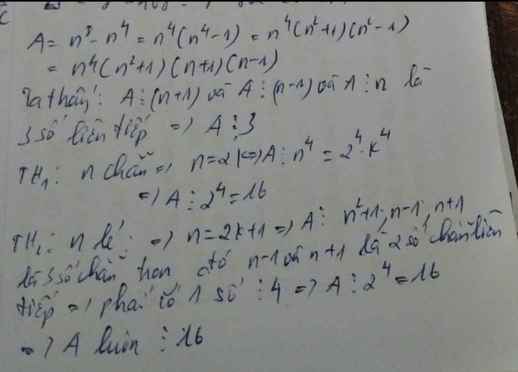 A = n⁸ - n⁴ = n⁴(n⁴-1) = n⁴(n²+1)(n²-1)
= n⁴(n²+1)(n+1)(n-1)
Ta thấy: A ⋮ (n+1) và A ⋮ (n-1) và A ⋮ n là
3 số liên tiếp => A ⋮ 3
TH₁: n chẵn => n=2k => A ⋮ n⁴ = 2⁴.k⁴
=> A ⋮ 2⁴ = 16
TH₂: n lẻ: => n=2k+1 => A ⋮ n²+1, n-1, n+1
là 3 số chẵn hơn đó n-1 và n+1 là 2 số chẵn liên
tiếp => phải có 1 số ⋮ 4 => A ⋮ 2⁴ = 16
=> A luôn ⋮ 16